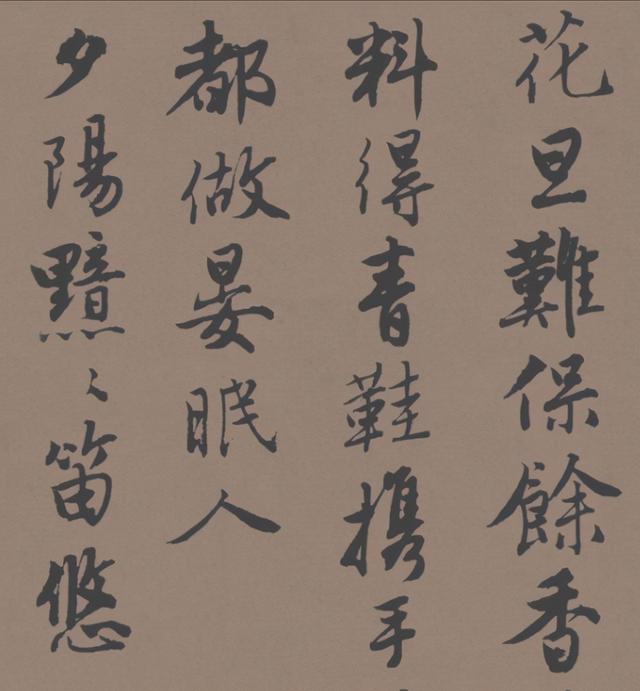 花旦難保餘香
料得青鞋携手
都做晏眠人
夕陽黯〻笛悠